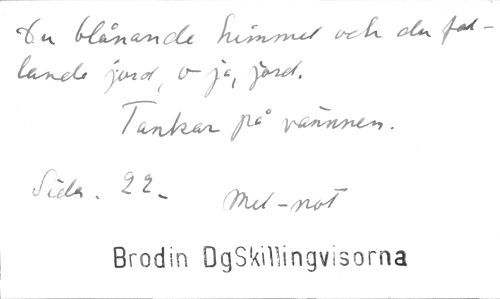 Du blånande himmel och du fal-
lande jord, o ja, jord.
Tankar på vännen.
Sida. 22.
Mel-not
Brodin DgSkillingvisorna